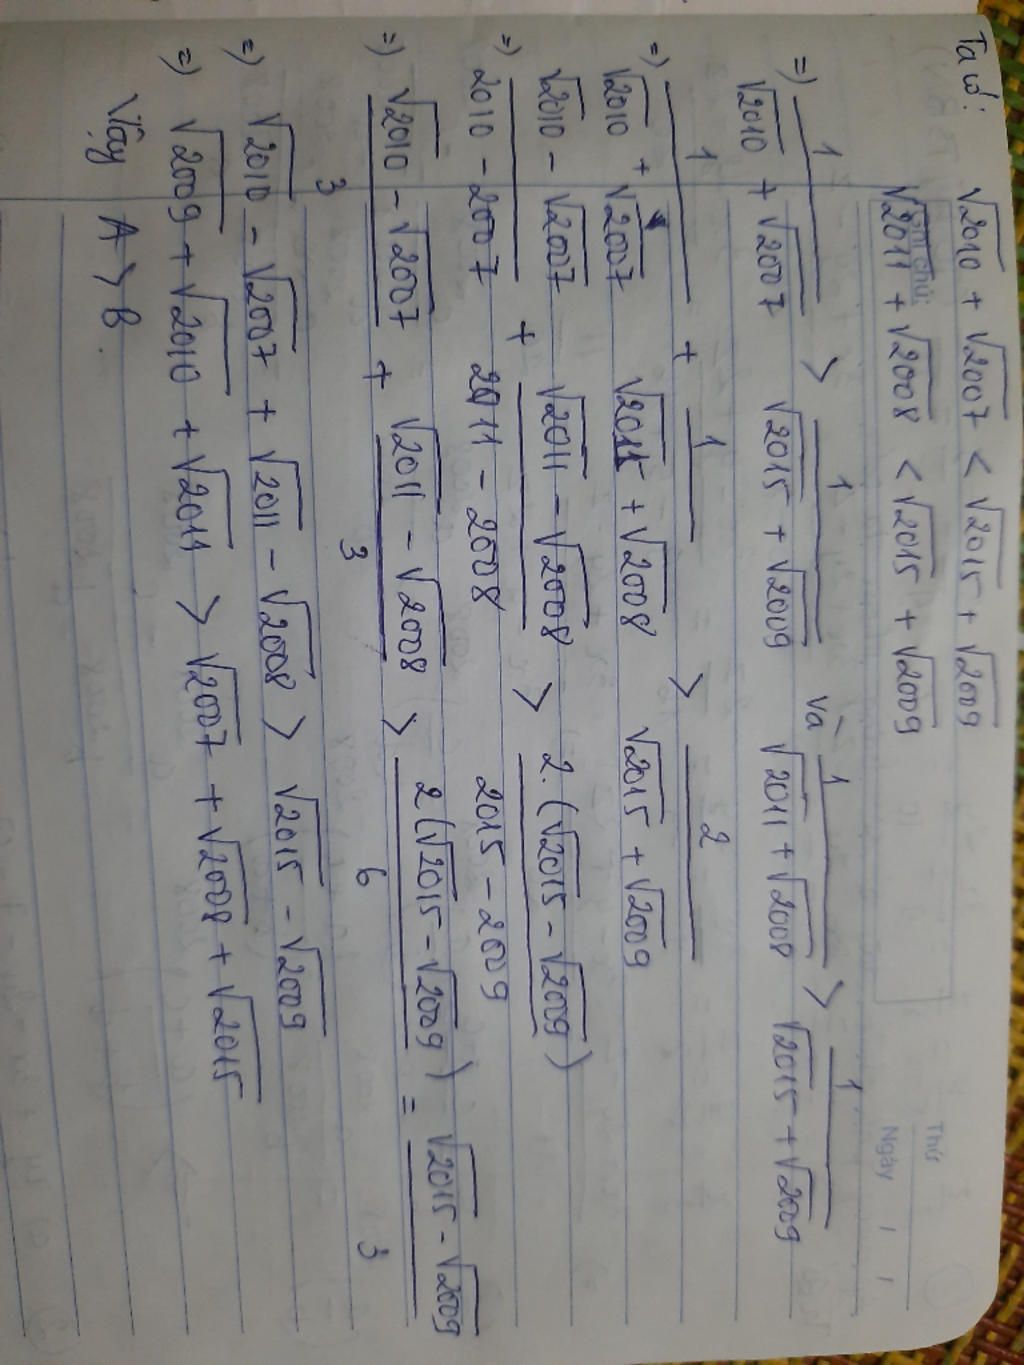 Ta có: √2010 + √2007 < √2015 + √2009
√2011 + √2008 < √2015 + √2009
Ghi chú:
Thứ
Ngày / /
=) 1/(√2010 + √2007) > 1/(√2015 + √2009) và 1/(√2011 + √2008) > 1/(√2015 + √2009)
=) 1/(√2010 + √2007) + 1/(√2011 + √2008) > 2/(√2015 + √2009)
=) (√2010 - √2007)/(2010 - 2007) + (√2011 - √2008)/(2011 - 2008) > 2.(√2015 - √2009)/(2015 - 2009)
=) (√2010 - √2007)/3 + (√2011 - √2008)/3 > 2(√2015 - √2009)/6 = (√2015 - √2009)/3
=) √2010 - √2007 + √2011 - √2008 > √2015 - √2009
=) √2009 + √2010 + √2011 > √2007 + √2008 + √2015
Vậy A > B.